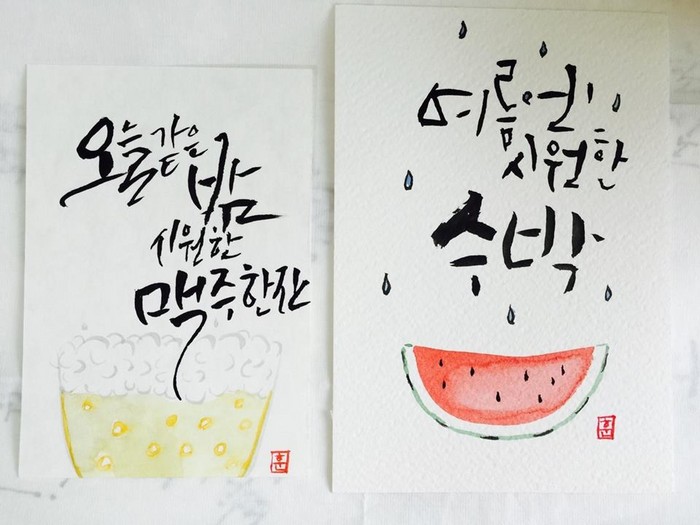 오늘같은
밤
시원한
맥주한잔
훈
여름엔
시원한
수박
훈